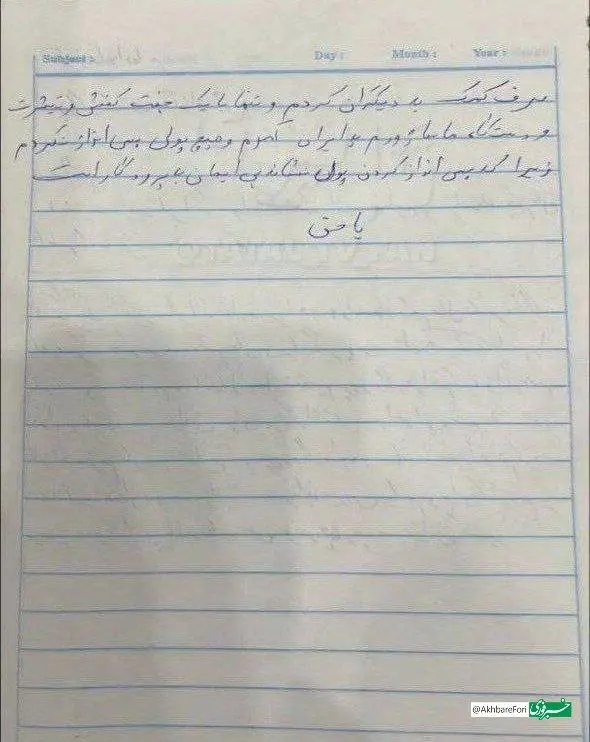 Subject : Day : Month : Year :
صرف کمک به دیگران کردم و تنها با یک جفت کفش و تیشرت
و دستگاه ماساژورم به ایران آمدم و هیچ پولی پس انداز نکردم
زیرا که پس انداز کردن پول نشانه بی ایمانی به پروردگار است
یا حق
@AkhbareFori خبرفوری